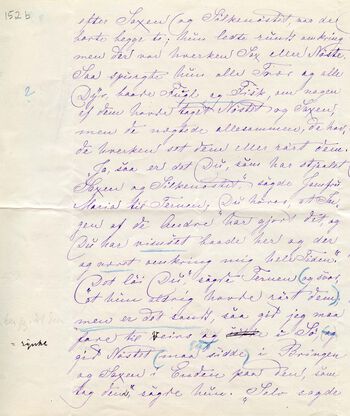 152 b
efter Saxen (og Silkenöstet, var de
borte begge to; hun ledte rundt omkring
men der var hverken Sax eller Nöste.
Saa spurgte hun alle Træer og alle
Dyr, baade Fugl og Fisk, om nogen
af dem havde taget Nöstet og Saxen,
?
men de nægtede allesammen, de havde
de hverken set dem eller rört dem.
"Jo, saa er det Du, som har stjaalet
Saxen og Silkenöstet," sagde Jomfru
Maria til Ternen, Du hörer, at In-
gen af de Andre har gjort det, og
Du har virret baade her og der
og været omkring mig hele Tiden."
"Det löi Du," sagde Ternen (og svor,
at hun aldrig havde rört dem)
men er det sandt, saa git jeg maa
fare til og i Sö og
= rÿnke
git Nöstet (maa sidde) i Bringen
og Saxen i Enden paa den, som
tog dem", sagde hun. "Selv sagde